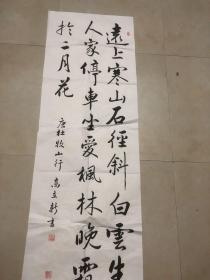 遠上寒山石徑斜白雲生
人家停車坐愛楓林晚霜
於二月花
唐杜牧山行 高立新書